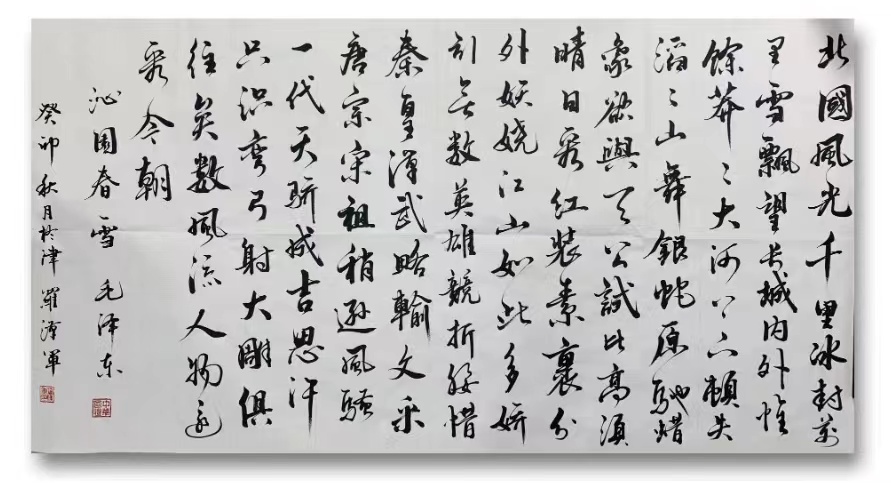 北國風光千里冰封萬
里雪飄望長城内外惟
餘莽〻大河上下頓失
滔〻山舞銀蛇原馳蜡
象欲與天公試比高須
晴日看紅裝素裹分
外妖娆江山如此多娇
引無数英雄競折腰惜
秦皇漢武略輸文采
唐宗宋祖稍遜風騷
一代天骄成吉思汗
只识弯弓射大雕俱
往矣数風流人物還
看今朝
沁園春雪 毛泽东
癸卯秋月於津 羅澤軍